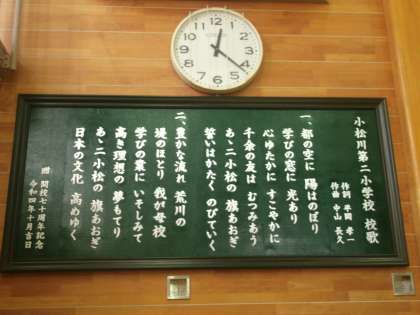 小松川第二小学校 校歌
作詞 平岡 孝一
作曲 中山 長久
一、都の空に 陽はのぼり
学びの窓に 光あり
心ゆたかに すこやかに
千余の友は むつみあう
あゝ二小松の 旗あおぎ
誓いはかたく のびていく
二、豊かな流れ 荒川の
堤のほとり 我が母校
学びの業に いそしみて
高き理想の 夢もてり
あゝ二小松の 旗あおぎ
日本の文化 高めゆく
贈 開校七十周年記念
令和四年十月吉日